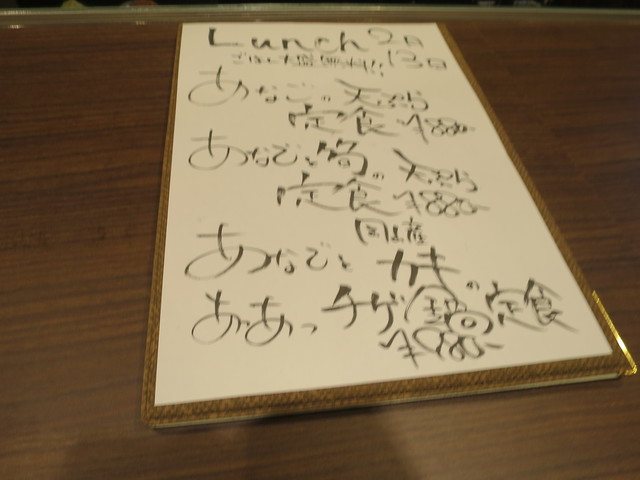 Lunch 2月13日
ごはん大盛無料!!
あなごの天ぷら
定食 ¥880-
あなごと筍の天ぷら
定食 ¥880-
国産
あなごとカキの
あつあつチゲ鍋定食
¥980-